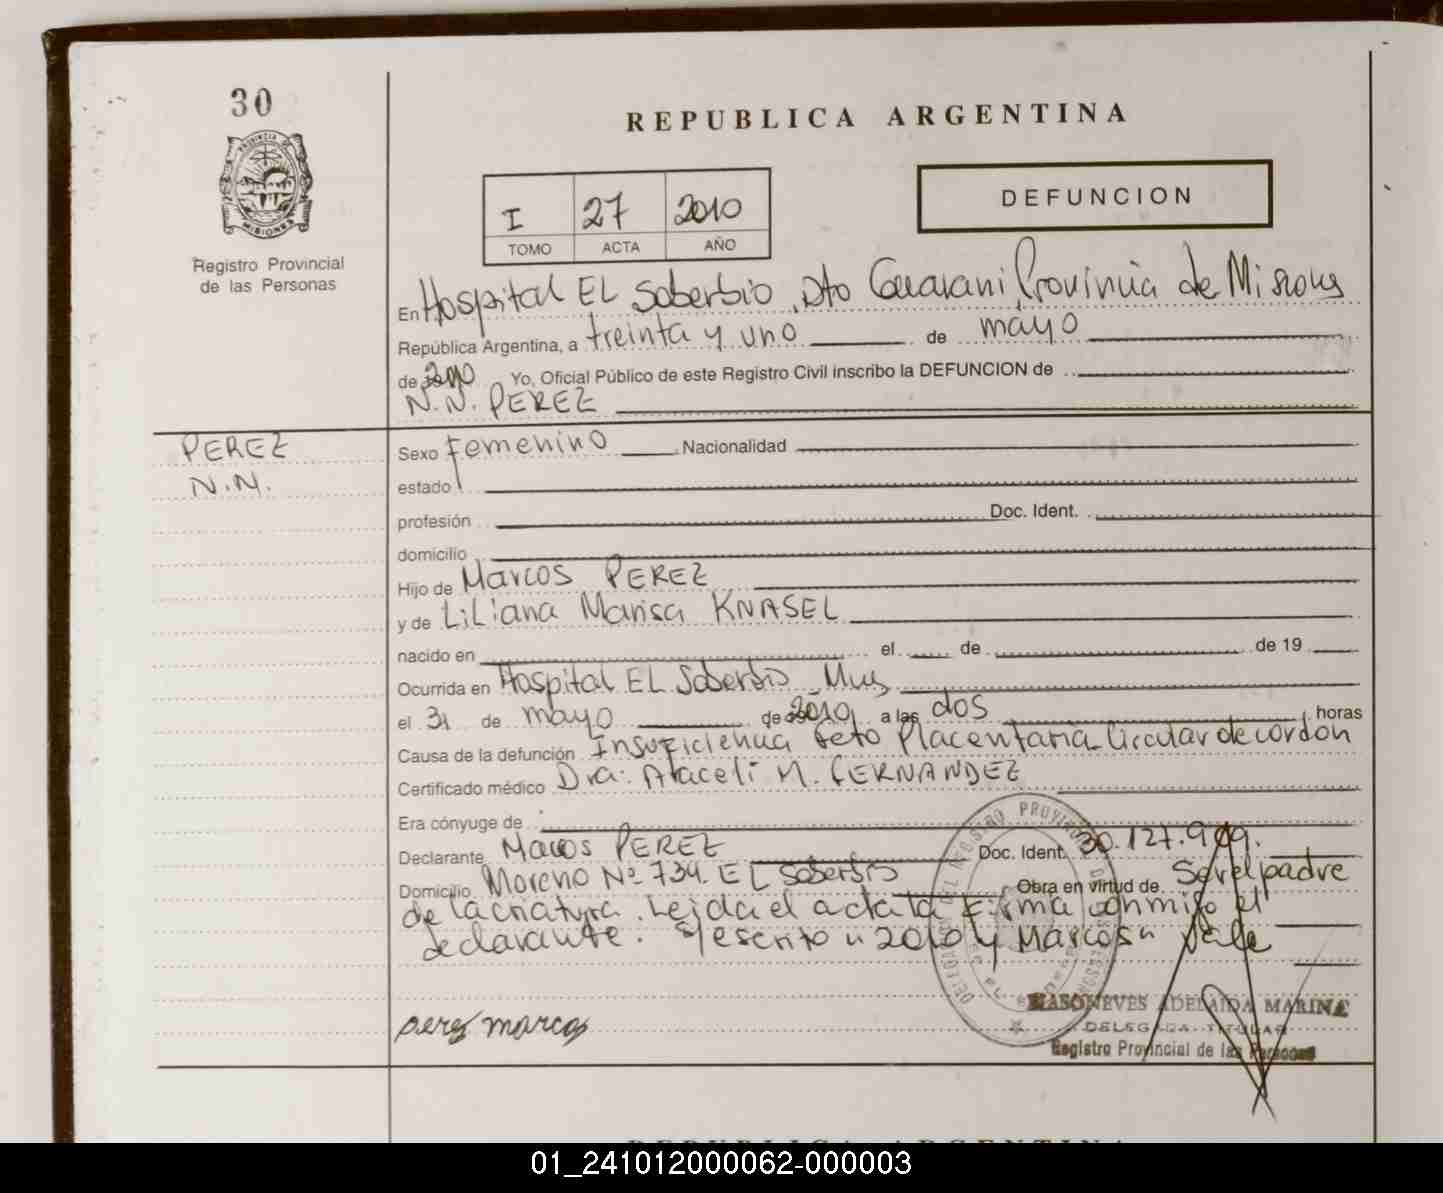 30
PROVINCIA DE
MISIONES
Registro Provincial
de las Personas
REPUBLICA ARGENTINA
I 27 2010
TOMO ACTA AÑO
DEFUNCION
En Hospital EL Soberbio, Dto Guarani Provincia de Misiones
República Argentina, a treinta y uno de mayo
de 2010 Yo, Oficial Público de este Registro Civil inscribo la DEFUNCION de
N.N. PEREZ
PEREZ
N.N.
Sexo Femenino Nacionalidad
estado
profesión Doc. Ident.
domicilio
Hijo de Marcos PEREZ
y de Liliana Marisa KNASEL
nacido en el de de 19
Ocurrida en Hospital EL Soberbio
el 31 de mayo de 2010 a las dos horas
Causa de la defunción Insuficiencia feto Placentaria Circular de cordon
Certificado médico Dra: Araceli M. FERNANDEZ
Era cónyuge de
Declarante Marcos PEREZ Doc. Ident. 30.127.909.
Domicilio Moreno Nº 734. EL Soberbio Obra en virtud de Ser el padre
de la criatura. Leida el acta la firma conmigo el
declarante. S/escrito "2010 y Marcos" Vale
perez marcos
MASONEVES ADELAIDA MARINA
DELEGADA TITULAR
Registro Provincial de las Personas
REPUBLICA ARGENTINA
01_241012000062-000003